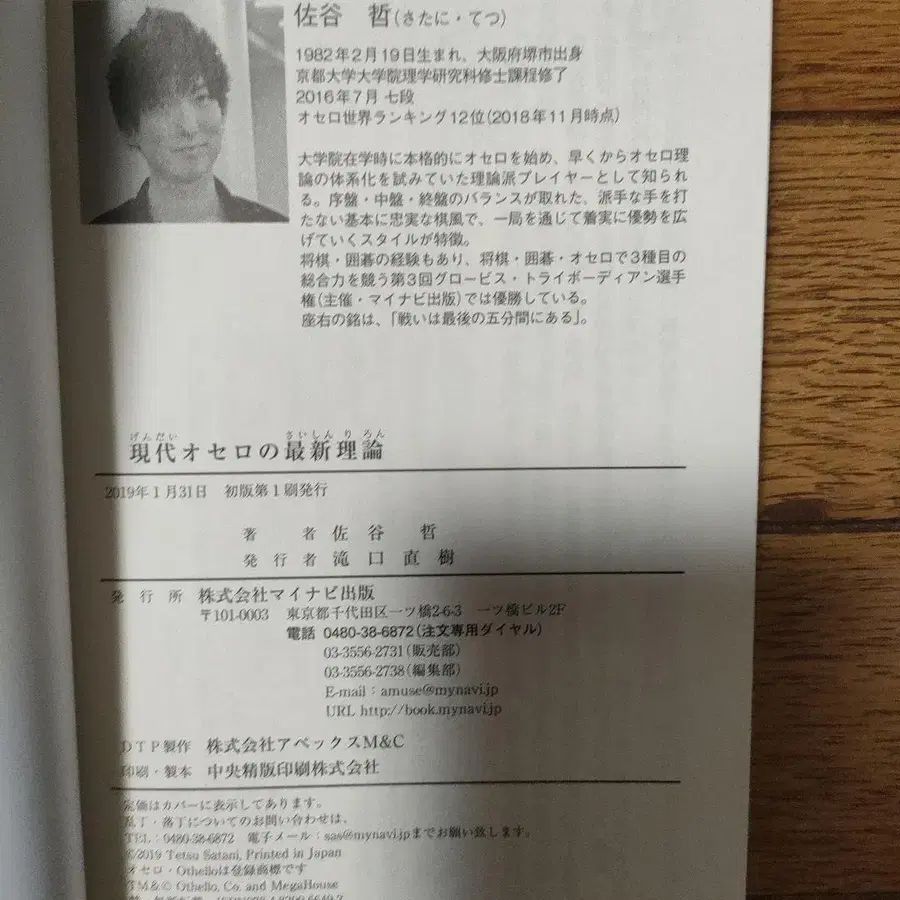 佐谷　哲(さたに・てつ)
1982年2月19日生まれ、大阪府堺市出身
京都大学大学院理学研究科修士課程修了
2016年7月 七段
オセロ世界ランキング12位(2018年11月時点)
大学院在学時に本格的にオセロを始め、早くからオセロ理
論の体系化を試みていた理論派プレイヤーとして知られ
る。序盤・中盤・終盤のバランスが取れた、派手な手を打
たない基本に忠実な棋風で、一局を通じて着実に優勢を広
げていくスタイルが特徴。
将棋・囲碁の経験もあり、将棋・囲碁・オセロで3種目の
総合力を競う第3回グロービス・トライボーディアン選手
権(主催・マイナビ出版)では優勝している。
座右の銘は、「戦いは最後の五分間にある」。
げんだい　さいしん り ろん
現代オセロの最新理論
2019年1月31日　初版第1刷発行
著　者　佐谷　哲
発行者　滝口直樹
発行所　株式会社マイナビ出版
〒101-0003　東京都千代田区一ツ橋2-6-3　一ツ橋ビル2F
電話　0480-38-6872(注文専用ダイヤル)
03-3556-2731(販売部)
03-3556-2738(編集部)
E-mail：amuse@mynavi.jp
URL http://book.mynavi.jp
DTP製作　株式会社アペックスM&C
印刷・製本　中央精版印刷株式会社
定価はカバーに表示してあります。
乱丁・落丁についてのお問い合わせは、
TEL：0480-38-6872　電子メール：sas@mynavi.jpまでお願い致します。
©2019 Tetsu Satani, Printed in Japan
オセロ・Othelloは登録商標です
TM&© Othello, Co. and MegaHouse